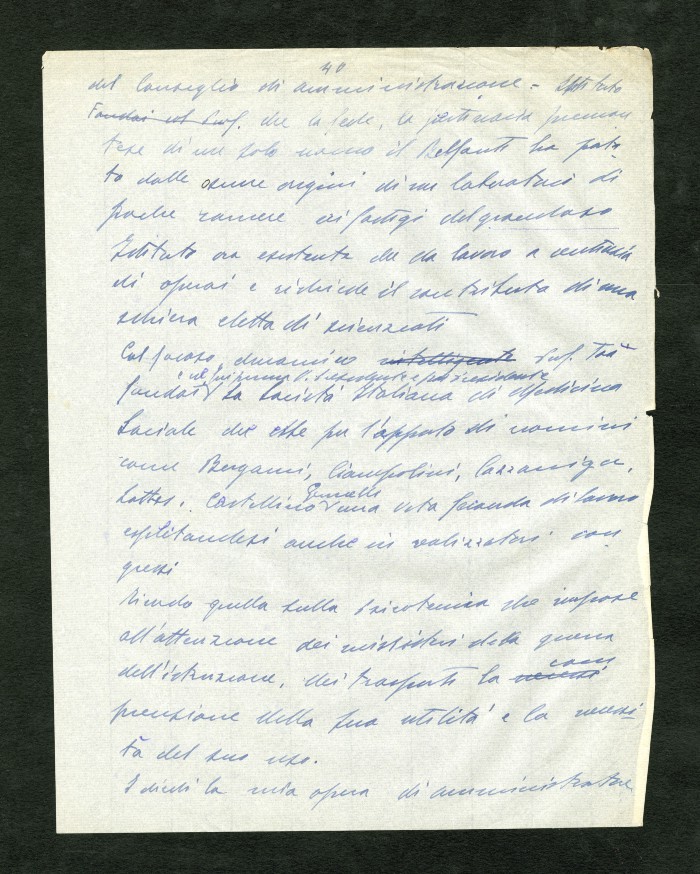 40
del Consiglio di amministrazione - Istituto
Fondai col Prof. che la fede, la pertinacia
di un solo uomo il Belfanti ha por-
to dalle oscure origini di un laboratorio di
poche camere ai fastigi del grandioso
Istituto ora esistente che da lavoro a centinaia
di operai e richiede il contributo di una
schiera eletta di scienziati
Col focoso, dinamico intelligente Prof. 
e ne fui prima V. presidente e poi presidente
fondai la Società Italiana di Medicina
Sociale che ebbe per l'apporto di uomini
come Bergami, Ciampolini, Cazzaniga,
Castellino una vita feconda di lavoro
esplicandosi anche in con
gressi
Ricordo quella sulla psicotecnica che impose
all'attenzione dei ministeri della guerra
dell'istruzione, dei trasporti la com
prensione della sua utilità e la necessi-
tà del suo uso.
I diedi la mia opera di amministratore